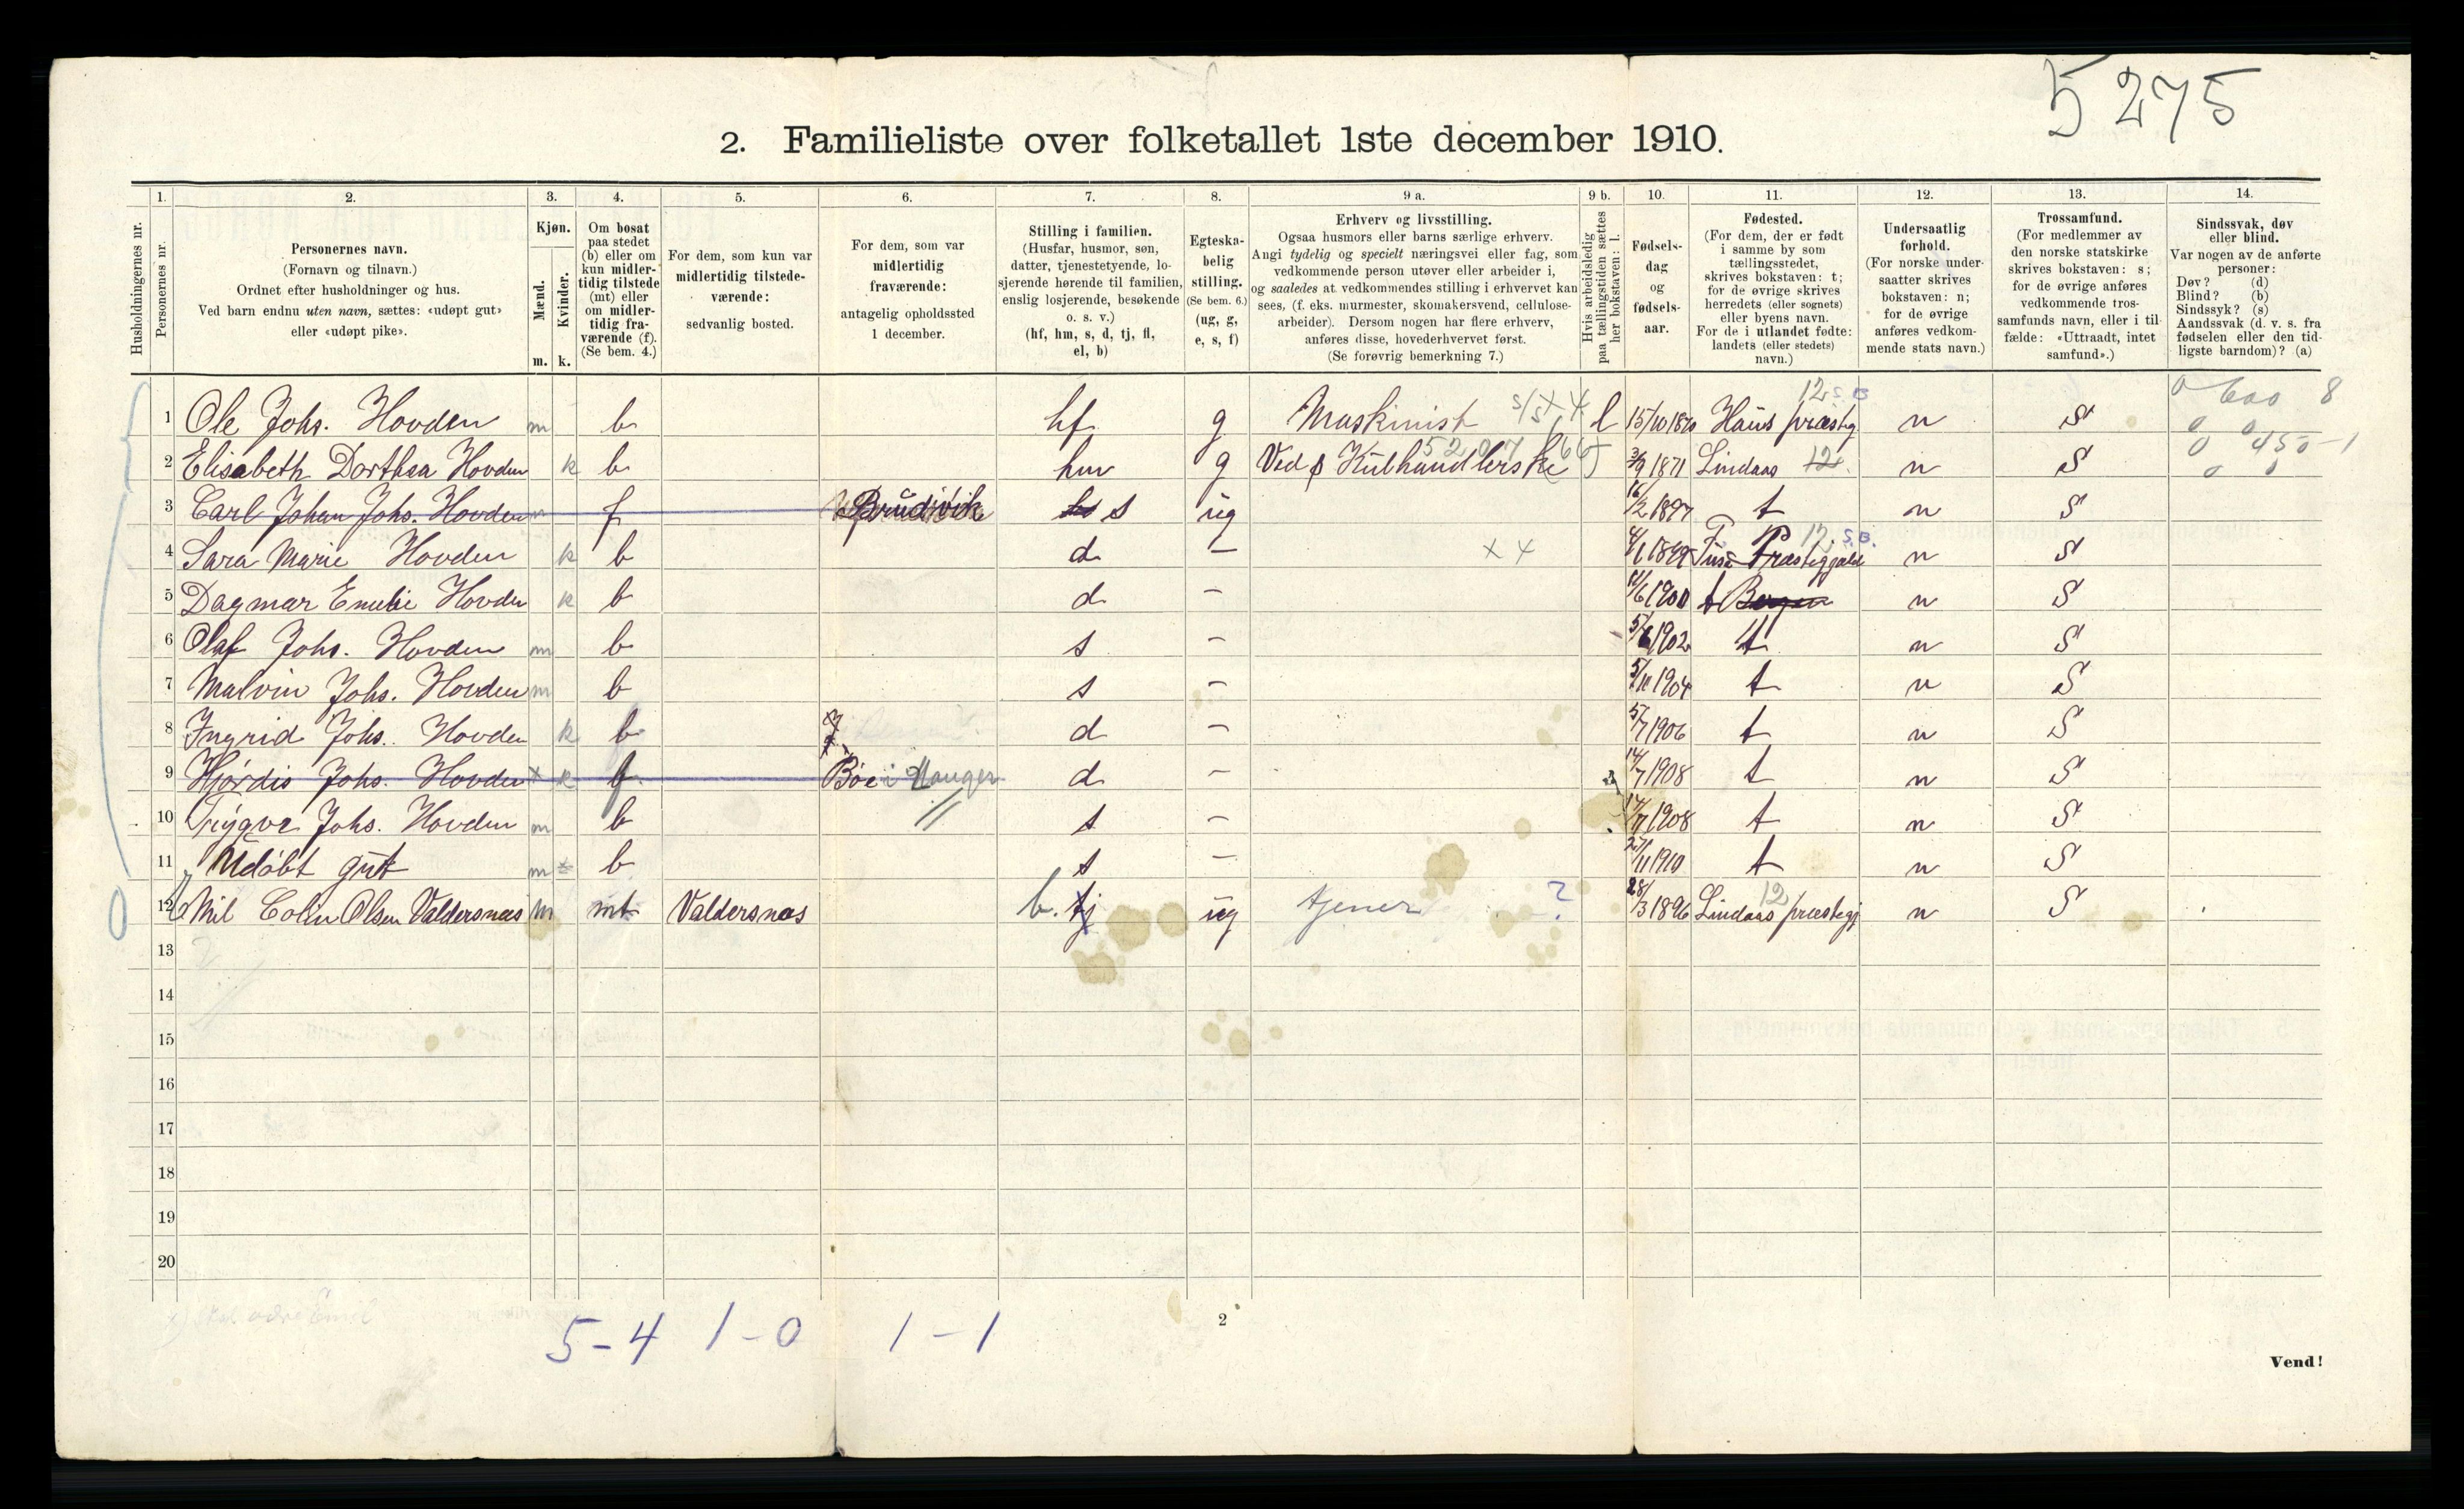 5275
2. Familieliste over folketallet 1ste december 1910.
1. 2. 3. 4. 5. 6. 7. 8. 9 a. 9 b. 10. 11. 12. 13. 14.
Husholdningernes nr.
Personernes nr.
Personernes navn.
(Fornavn og tilnavn.)
Ordnet efter husholdninger og hus.
Ved barn endnu uten navn, sættes: «udøpt gut»
eller «udøpt pike».
Kjøn.
Mænd.
Kvinder.
m. k.
Om bosat
paa stedet
(b) eller om
kun midler-
tidig tilstede
(mt) eller
om midler-
tidig fra-
værende (f).
(Se bem. 4.)
For dem, som kun var
midlertidig tilstede-
værende:
sedvanlig bosted.
For dem, som var
midlertidig
fraværende:
antagelig opholdssted
1 december.
Stilling i familien.
(Husfar, husmor, søn,
datter, tjenestetyende, lo-
sjerende hørende til familien,
enslig losjerende, besøkende
o. s. v.)
(hf, hm, s, d, tj, fl,
el, b)
Egteska-
belig
stilling.
(Se bem. 6.)
(ug, g,
e, s, f)
Erhverv og livsstilling.
Ogsaa husmors eller barns særlige erhverv.
Angi tydelig og specielt næringsvei eller fag, som
vedkommende person utøver eller arbeider i,
og saaledes at vedkommendes stilling i erhvervet kan
sees, (f. eks. murmester, skomakersvend, cellulose-
arbeider). Dersom nogen har flere erhverv,
anføres disse, hovederhvervet først.
(Se forøvrig bemerkning 7.)
Hvis arbeidsledig
paa tællingstiden sættes
her bokstaven: l.
Fødsels-
dag
og
fødsels-
aar.
Fødested.
(For dem, der er født
i samme by som
tællingsstedet,
skrives bokstaven: t;
for de øvrige skrives
herredets (eller sognets)
eller byens navn.
For de i utlandet fødte:
landets (eller stedets)
navn.)
Undersaatlig
forhold.
(For norske under-
saatter skrives
bokstaven: n;
for de øvrige
anføres vedkom-
mende stats navn.)
Trossamfund.
(For medlemmer av
den norske statskirke
skrives bokstaven: s;
for de øvrige anføres
vedkommende tros-
samfunds navn, eller i til-
fælde: «Uttraadt, intet
samfund».)
Sindssvak, døv
eller blind.
Var nogen av de anførte
personer:
Døv? (d)
Blind? (b)
Sindssyk? (s)
Aandssvak (d. v. s. fra
fødselen eller den tid-
ligste barndom)? (a)
1 Ole Johs. Hovden m b hf g Maskinist l 15/10 1870 Haus præstg n S
2 Elisabeth Dorthea Hovden k b hm g Ved & Kulhandlerske 3/9 1871 Lindaas 12 n S
3 Carl Johan Johs. Hovden m f Brudvik s ug 16/2 1897 t n S
4 Sara Marie Hovden k b d – x 4 4/1 1899 Fuse Præstegjæld 12 S.B. n S
5 Dagmar Emelie Hovden k b d – 11/6 1900 t Bergen n S
6 Olaf Johs. Hovden m b s – 5/6 1902 t n S
7 Malvin Johs. Hovden m b s – 5/11 1904 t n S
8 Ingrid Johs. Hovden k b d – 5/7 1906 t n S
9 Hjórdis Johs. Hovden x k f Böe i Manger d – 14/7 1908 t n S
10 Trygve Johs. Hovden m b s – 14/7 1908 t n S
11 Udóbt gut m b s – 27/11 1910 t n S
12 Mil Colin Olsen Valdersnæs m mt Valdersnæs b. tj ug tjener ? 28/3 1896 Lindaas præstegj 12 n S
13
14
15
16
17
18
19
20
5-4 1-0 1-1
2
Vend!